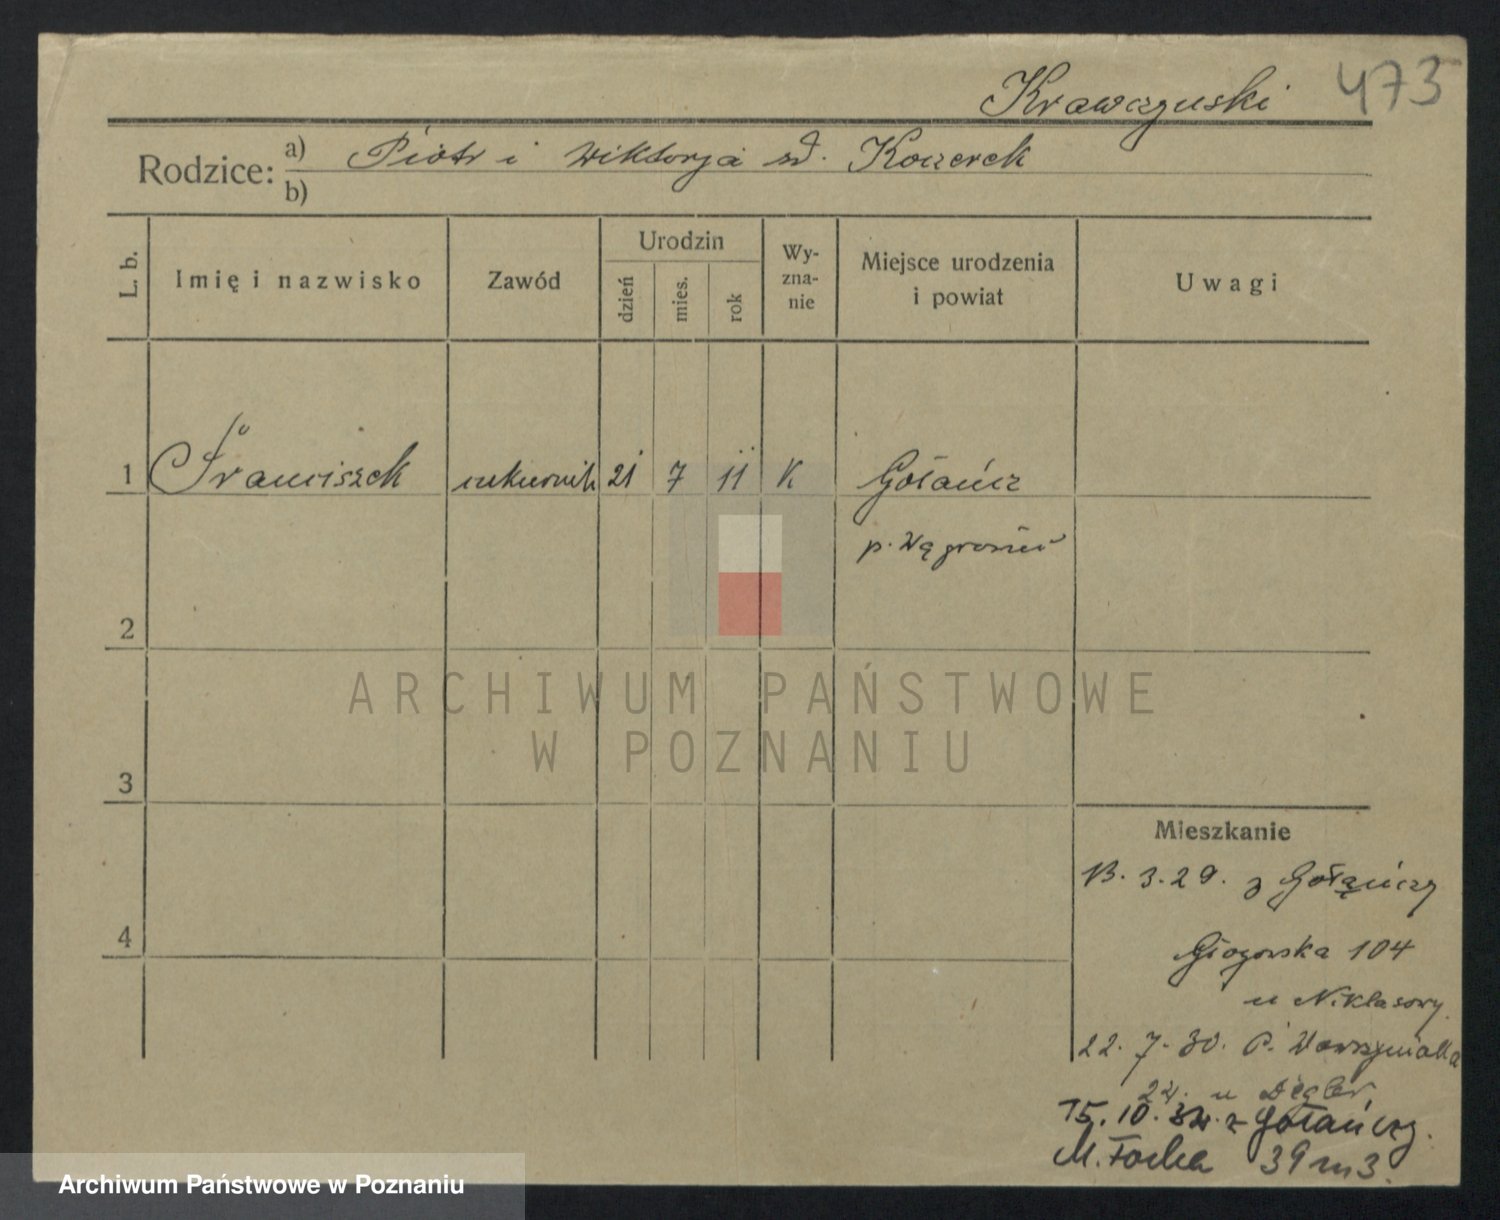 Krawczyński 473
Rodzice: a) Piotr i Wiktorja zd. Koczerek
b)
L. b. Imię i nazwisko Zawód Urodzin dzień mies. rok Wyznanie Miejsce urodzenia i powiat Uwagi
1 Franciszek cukiernik 21 7 11 K Gołańcz
p. Wągrowiec
2
ARCHIWUM PAŃSTWOWE
W POZNANIU
3
Mieszkanie
13. 3. 29. z Gołańczy
4
Głogowska 104
u Niklasowy
22. 7. 30. P. Wawrzyniaka
24. u
15. 10. 34. z Gołańczy.
M. Focha 39 m 3.
Archiwum Państwowe w Poznaniu